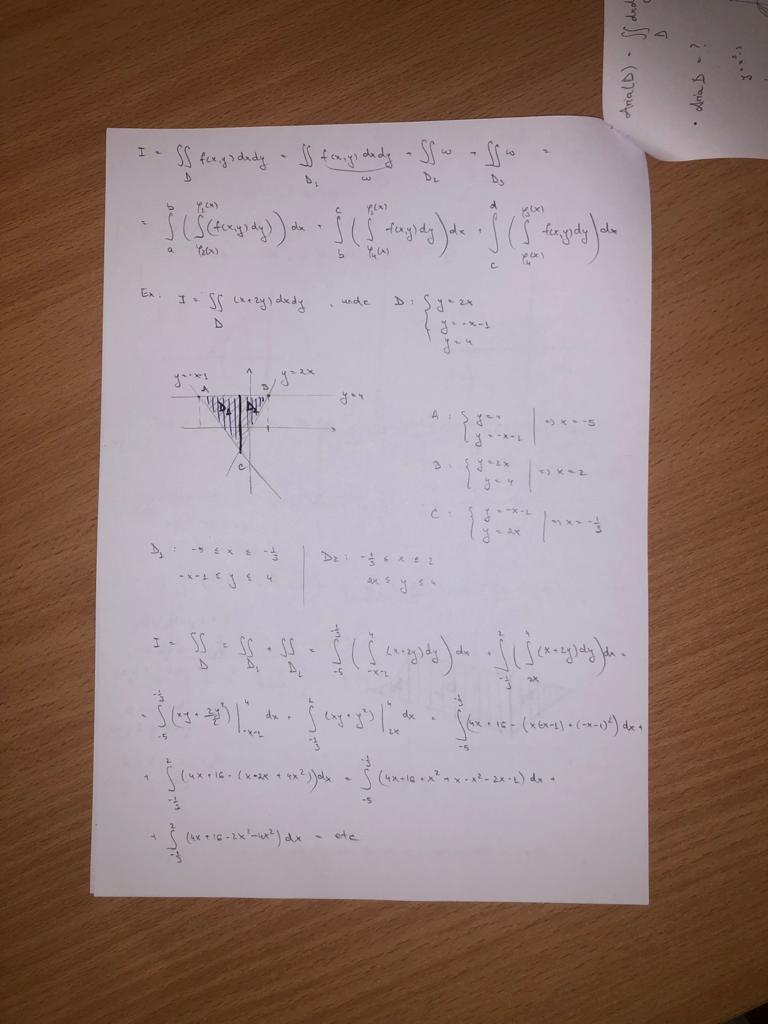 I = ∬_D f(x,y) dxdy = ∬_{D₁} f(x,y) dxdy + ∬_{D₂} ω + ∬_{D₃} ω =
ω
= ∫_a^b ( ∫_{φ₂(x)}^{φ₁(x)} (f(x,y) dy) ) dx + ∫_b^c ( ∫_{φ₄(x)}^{φ₁(x)} f(x,y) dy ) dx + ∫_c^d ( ∫_{φ₄(x)}^{φ₃(x)} f(x,y) dy ) dx
Ex: I = ∬_D (x+2y) dxdy , unde D: { y = 2x
y = -x-1
y = 4
y=-x-1 A B y = 2x
y=4
D₁ D₂
C
A: { y = 4
y = -x-1 | ⇒ x = -5
B: { y = 2x
y = 4 | ⇒ x = 2
C: { y = -x-1
y = 2x | ⇒ x = -1/3
D₁: -5 ≤ x ≤ -1/3 | D₂: -1/3 ≤ x ≤ 2
-x-1 ≤ y ≤ 4 | 2x ≤ y ≤ 4
I = ∬_D = ∬_{D₁} + ∬_{D₂} = ∫_{-5}^{-1/3} ( ∫_{-x-1}^4 (x+2y) dy ) dx + ∫_{-1/3}^2 ( ∫_{2x}^4 (x+2y) dy ) dx =
= ∫_{-5}^{-1/3} (xy + 2y²/2) |_{-x-1}^4 dx + ∫_{-1/3}^2 (xy + y²) |_{2x}^4 dx = ∫_{-5}^{-1/3} (4x + 16 - (x(-x-1) + (-x-1)²) dx +
+ ∫_{-1/3}^2 (4x + 16 - (x·2x + 4x²)) dx = ∫_{-5}^{-1/3} (4x + 16 + x² + x - x² - 2x - 1) dx +
+ ∫_{-1/3}^2 (4x + 16 - 2x² - 4x²) dx = etc
Aria(D) = ∬_D
• Aria D = ?